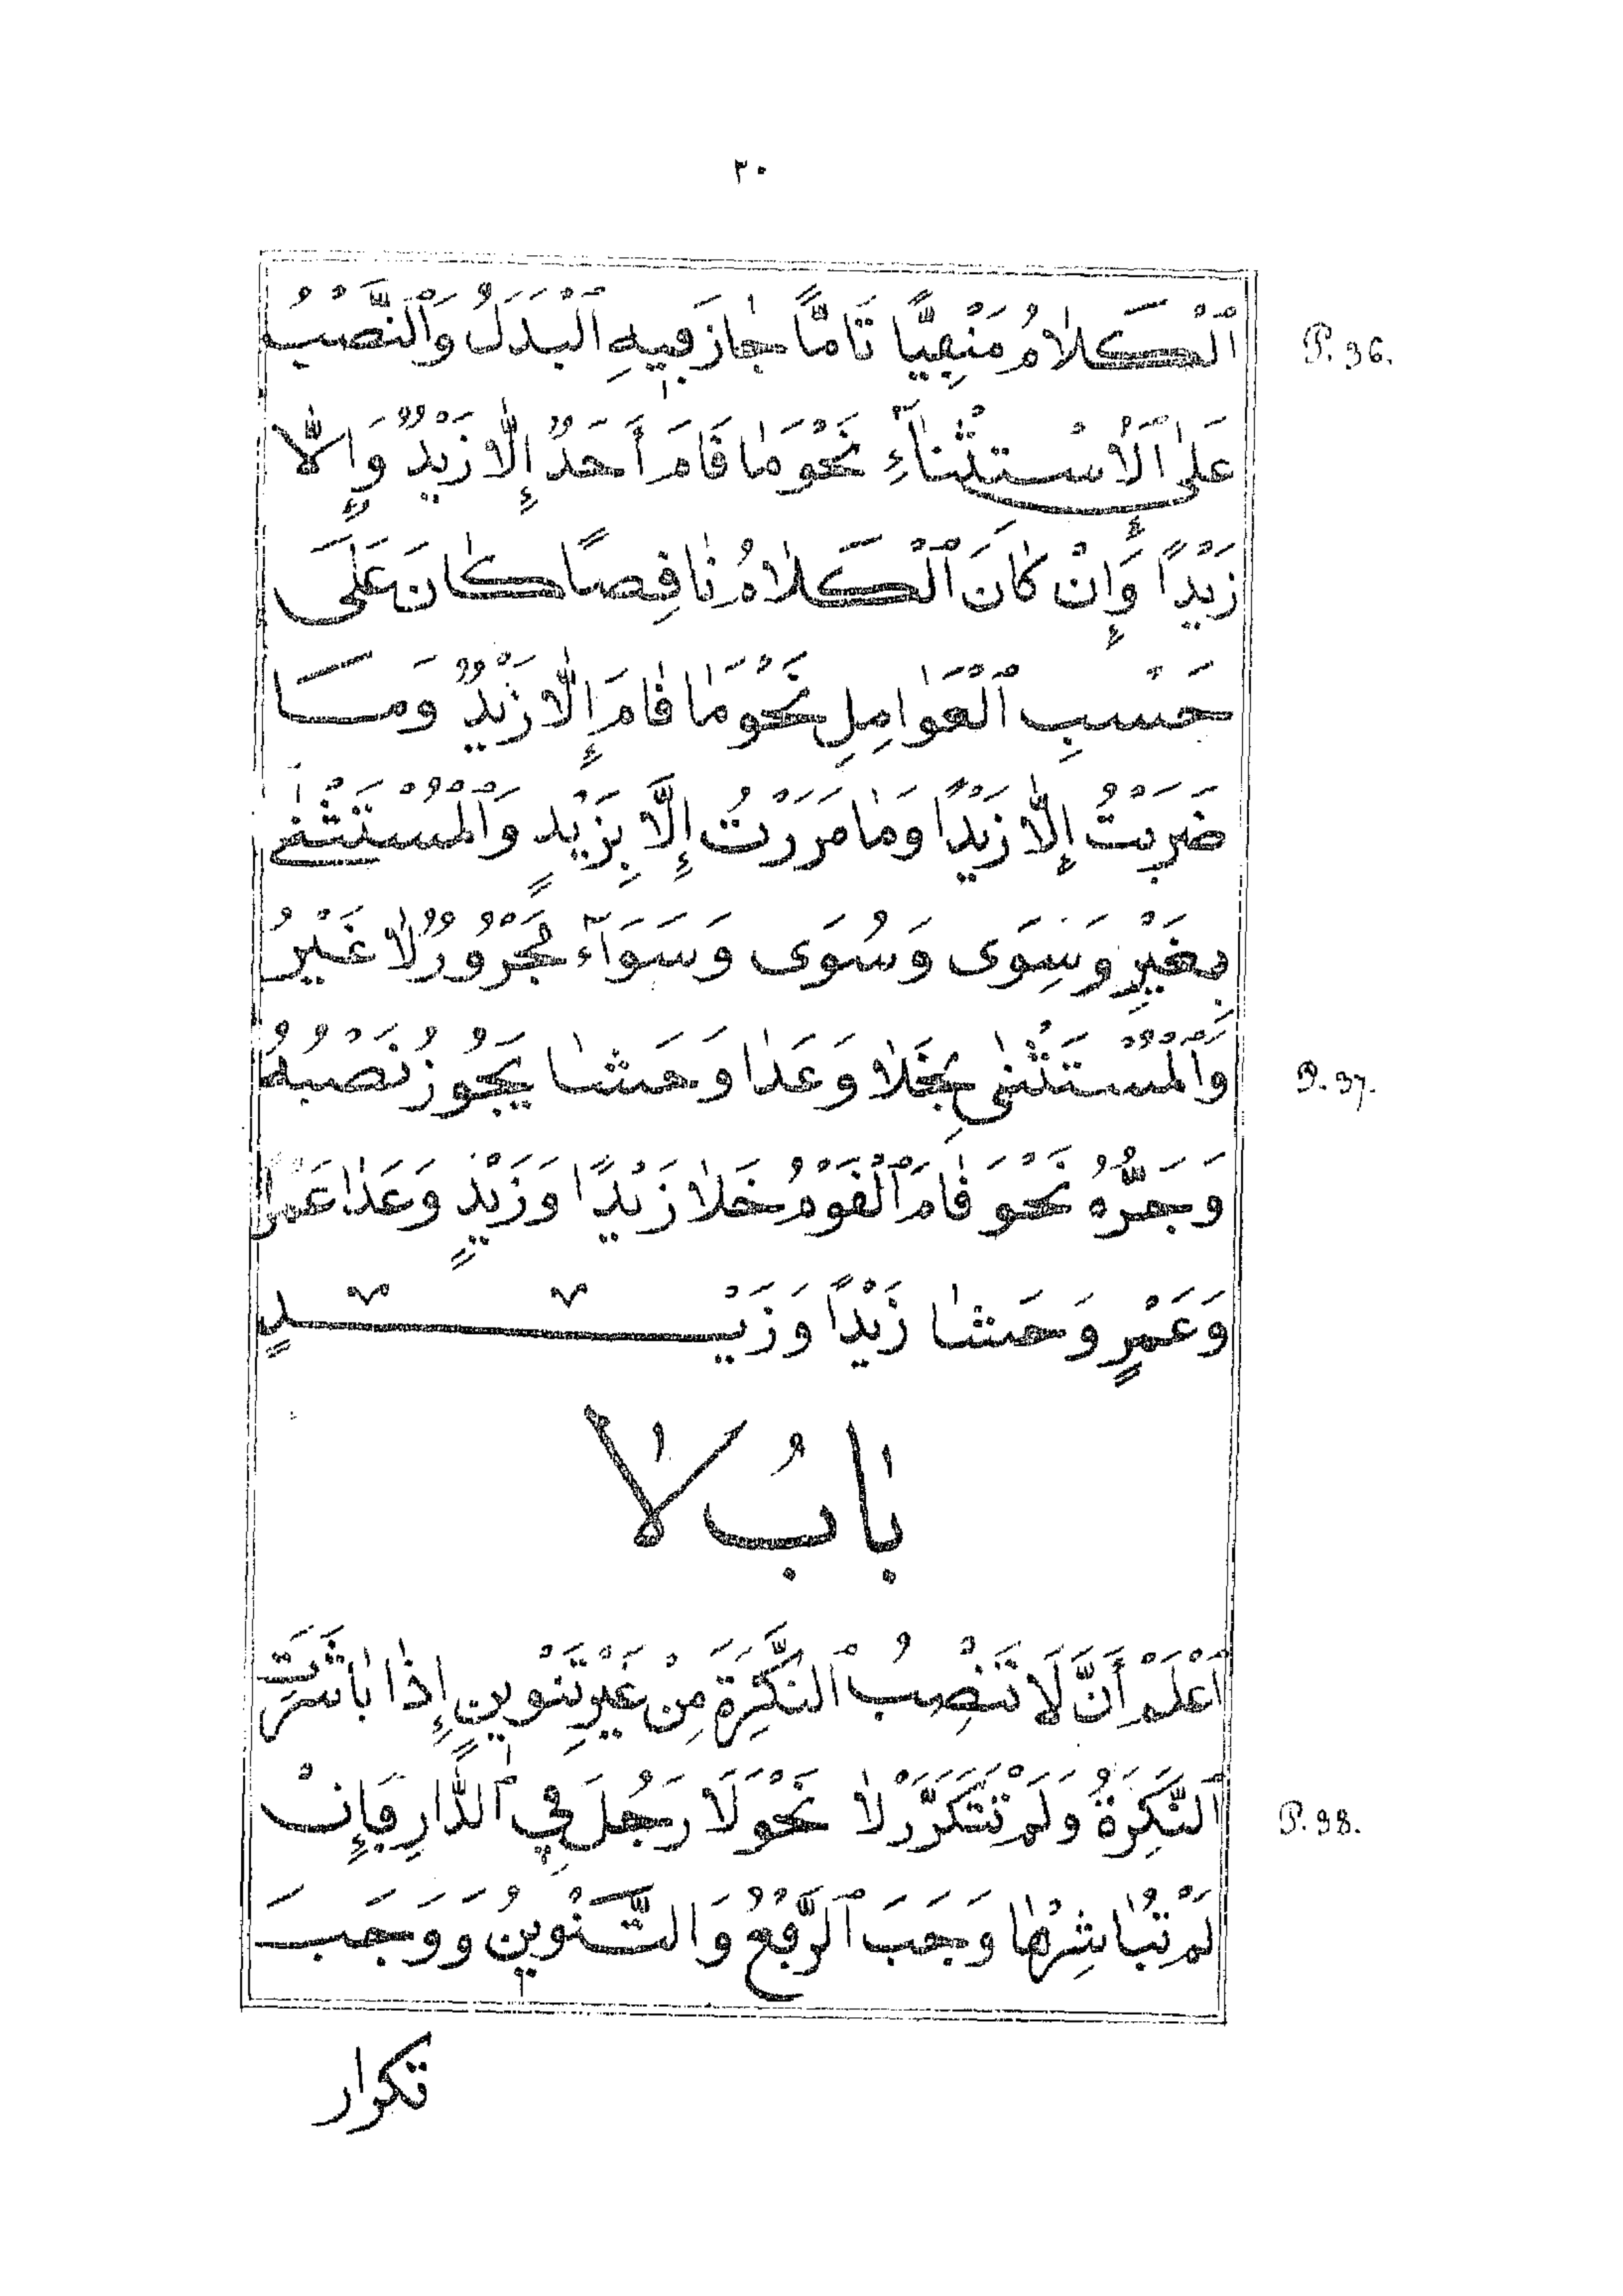 ٣٠
ٱلْكَلَامُ مَنْفِيًّا تَامًّا جَازَ فِيهِ ٱلْبَدَلُ وَٱلنَّصْبُ
P. 36.
عَلَى ٱلْإِسْتِثْنَاءِ نَحْوَ مَا قَامَ أَحَدٌ إِلَّا زَيْدٌ وَإِلَّا
زَيْدًا وَإِنْ كَانَ ٱلْكَلَامُ نَاقِصًا كَانَ عَلَى
حَسَبِ ٱلْعَوَامِلِ نَحْوَ مَا قَامَ إِلَّا زَيْدٌ وَمَا
ضَرَبْتُ إِلَّا زَيْدًا وَمَا مَرَرْتُ إِلَّا بِزَيْدٍ وَٱلْمُسْتَثْنَى
بِغَيْرِ وَسِوَى وَسُوَى وَسَوَآءٌ مَجْرُورٌ لَا غَيْرُ
وَٱلْمُسْتَثْنَى بِخَلَا وَعَدَا وَحَشَا يَجُوزُ نَصْبُهُ
P. 37.
وَجَرُّهُ نَحْوَ قَامَ ٱلْقَوْمُ خَلَا زَيْدًا وَزَيْدٍ وَعَدَا عَمْرًا
وَعَمْرٍ وَحَشَا زَيْدًا وَزَيْدٍ
بَابُ لَا
ٱعْلَمْ أَنَّ لَا تَنْصِبُ ٱلنَّكِرَةَ مِنْ غَيْرِ تَنْوِينٍ إِذَا بَاشَرَتِ
ٱلنَّكِرَةُ وَلَمْ تَتَكَرَّرْ لَا نَحْوَ لَا رَجُلَ فِي ٱلدَّارِ فَإِنْ
P. 38.
لَمْ تُبَاشِرْهَا وَجَبَ ٱلرَّفْعُ وَالتَّنْوِينُ وَوَجَبَ
تكرار